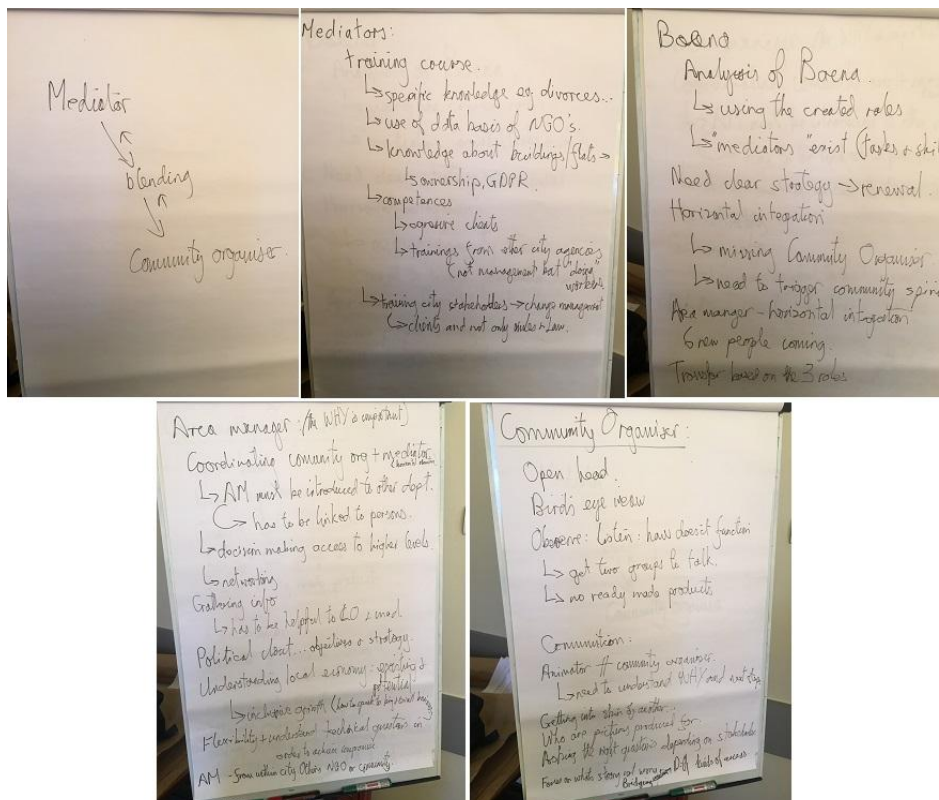 Mediator
blending
Community organiser.
Mediators:
training course.
↳specific knowledge eg divorces...
↳use of data basis of NGO's.
↳knowledge about buildings/flats →
↳ownership, GDPR
↳competences
↳agresive clients
↳trainings from other city agencies
(not management but "doing"
↳training city stakeholders → change management
↳clients and not only rules + Law.
Boena
Analysis of Boena
↳using the created roles
↳"mediators" exist (tasks +
Need clear strategy → renewal.
Horizontal integration
↳missing Community Organiser
↳need to trigger community
Area manger - horizontal integration
6 new people coming.
Transfer based on the 3 roles
Area manager: (the WHY is important)
Coordinating comunity org + mediator
↳AM must be introduced to other dept.
↳has to be linked to persons.
↳decision making access to higher levels
↳networking
Gathering info
↳has to be helpful to CO + med.
Political clout... objectives + strategy.
Understanding local economy: existing &
potential
↳inclusive growth
Flexibility + understand technical question in
order to achieve
AM - from within city Others NGO or comunity.
Community Organiser:
Open head.
Bird's eye view
Observe: Listen: how doesn't function
↳get two groups to talk.
↳no ready made products
Animator ≠ comunity organiser.
↳need to understand WHY need
Getting into skin of another.
Who are
Asking the right questions depending on stakeholder